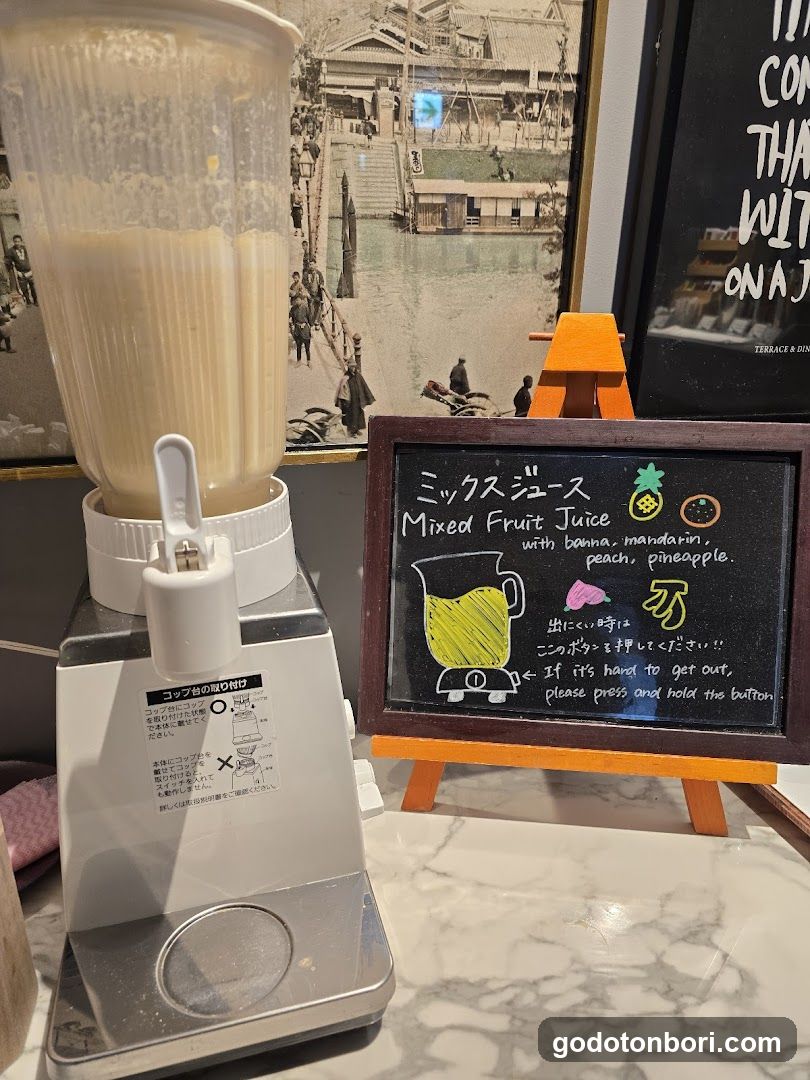 ミックスジュース
Mixed Fruit Juice
with banna, mandarin,
peach, pineapple.
出にくい時は
このボタンを押してください!!
If it's hard to get out,
please press and hold the button
コップ台の取り付け
コップ台にコップ
を取り付けた状態
で本体に載せてく
ださい。
本体にコップ台を
載せてコップを
取り付けると、
スイッチを入れて
も動作しません。
詳しくは取扱説明書をご確認ください。
CON
THA
WIT
ON A J
TERRACE & DIN
godotonbori.com